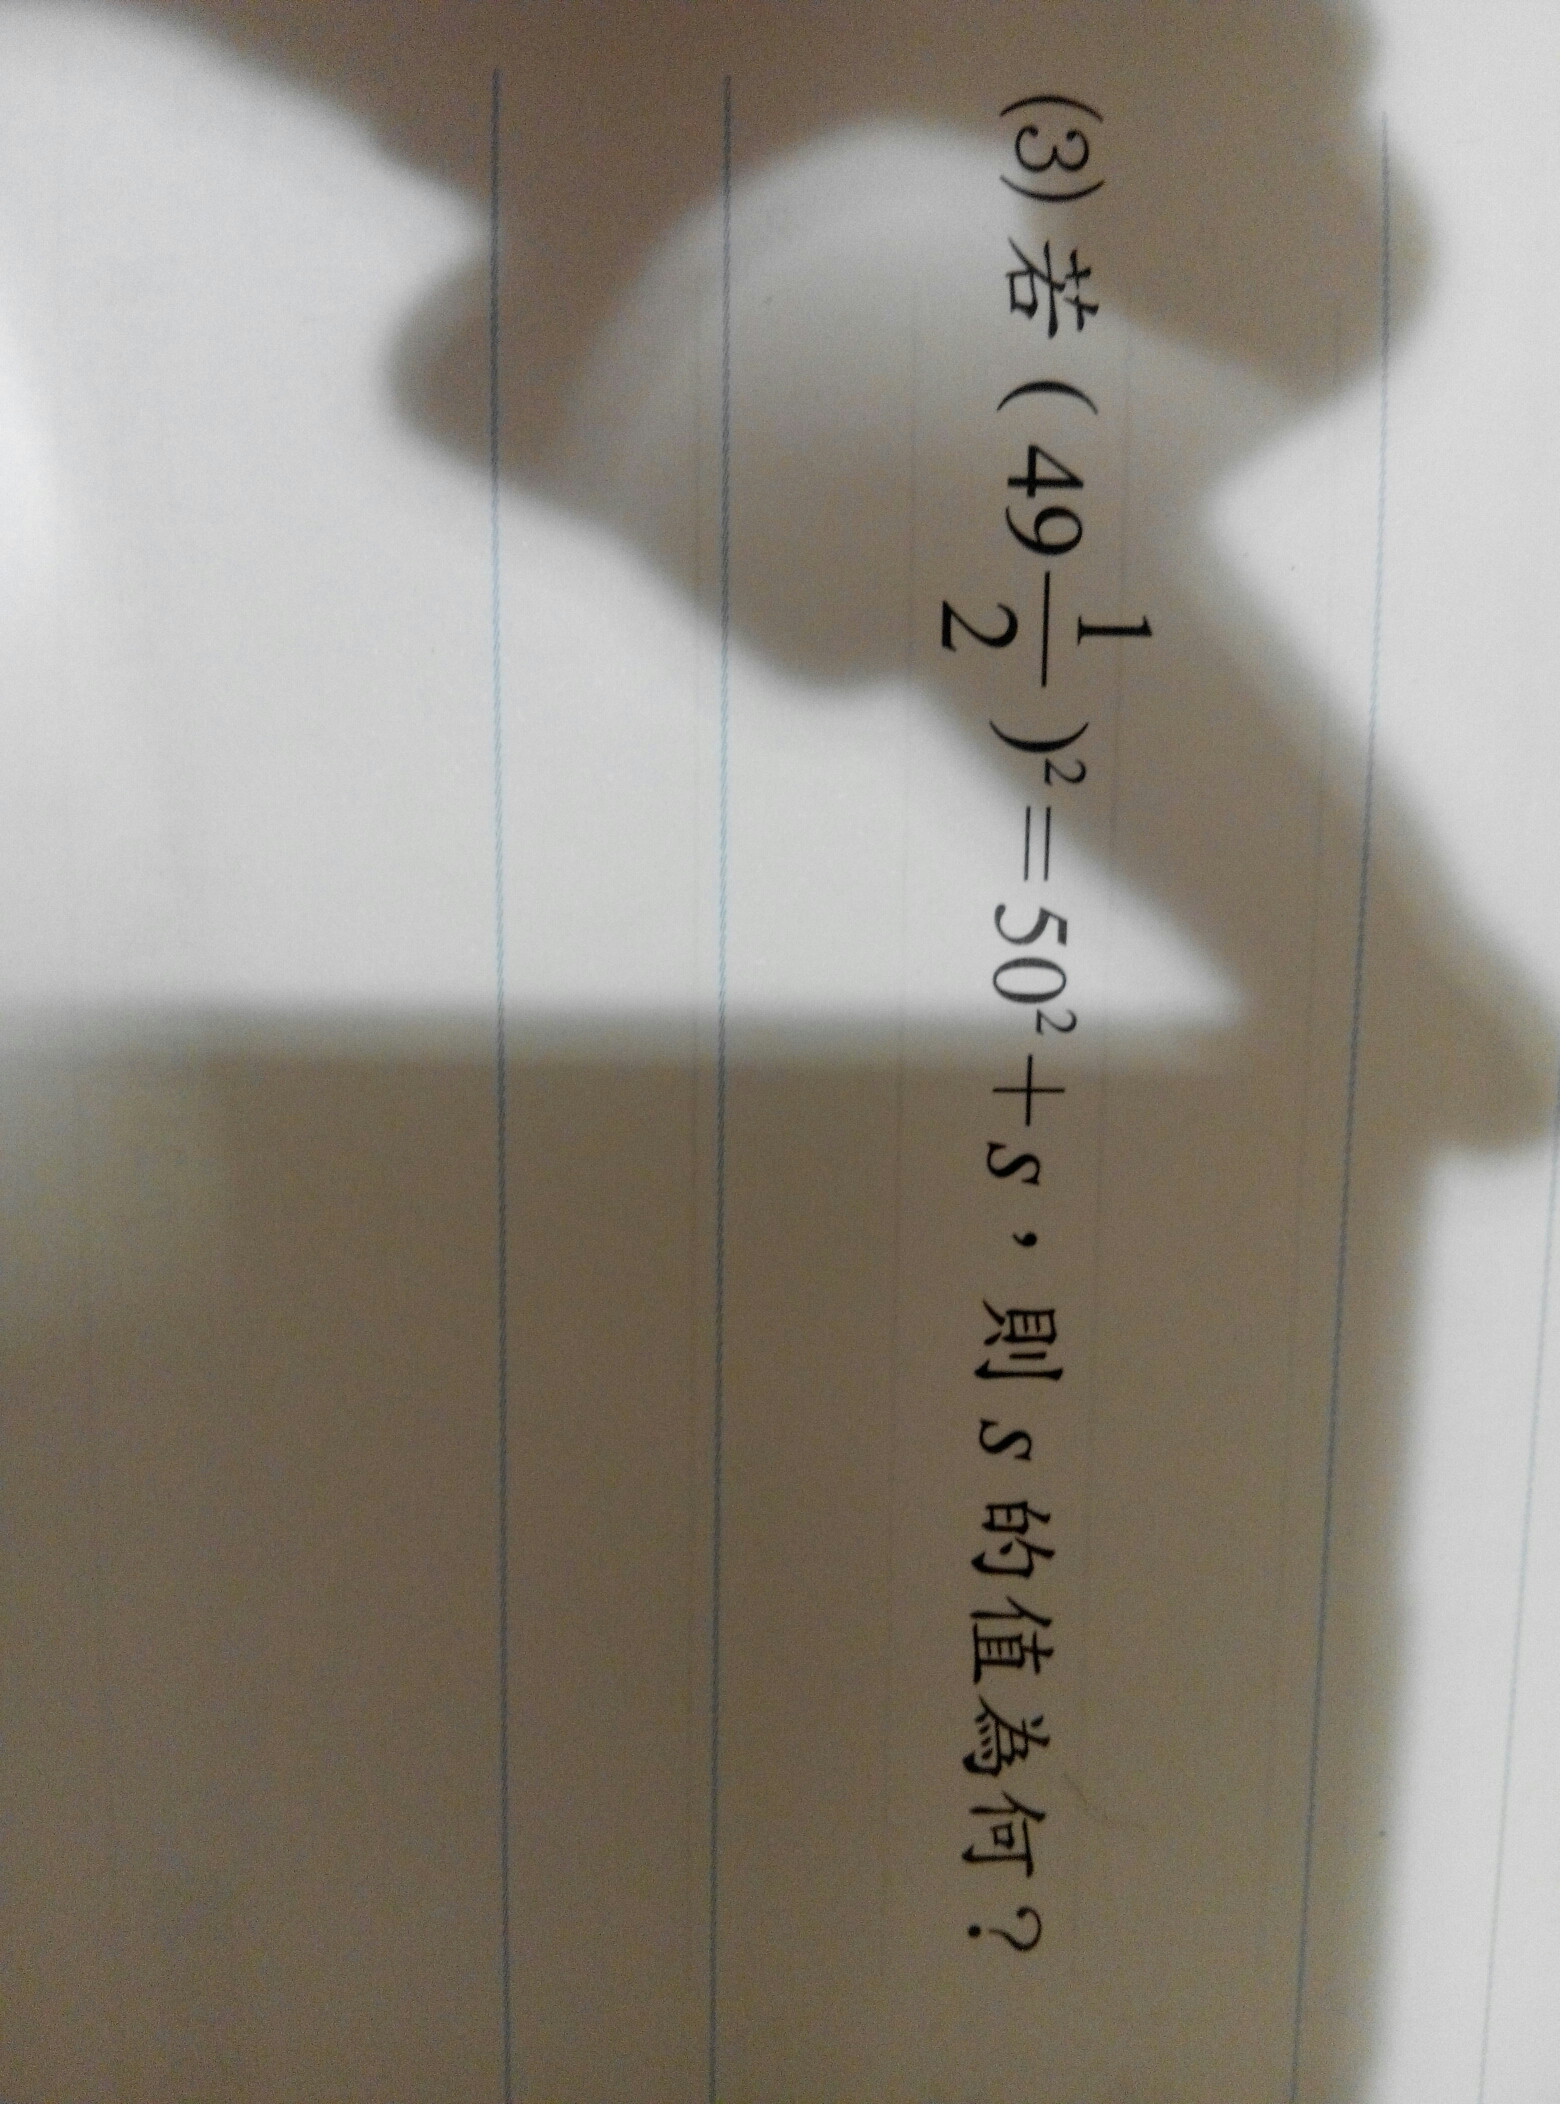 (3) 若 ( 49 1/2 )² = 50² + s，則 s 的值為何？